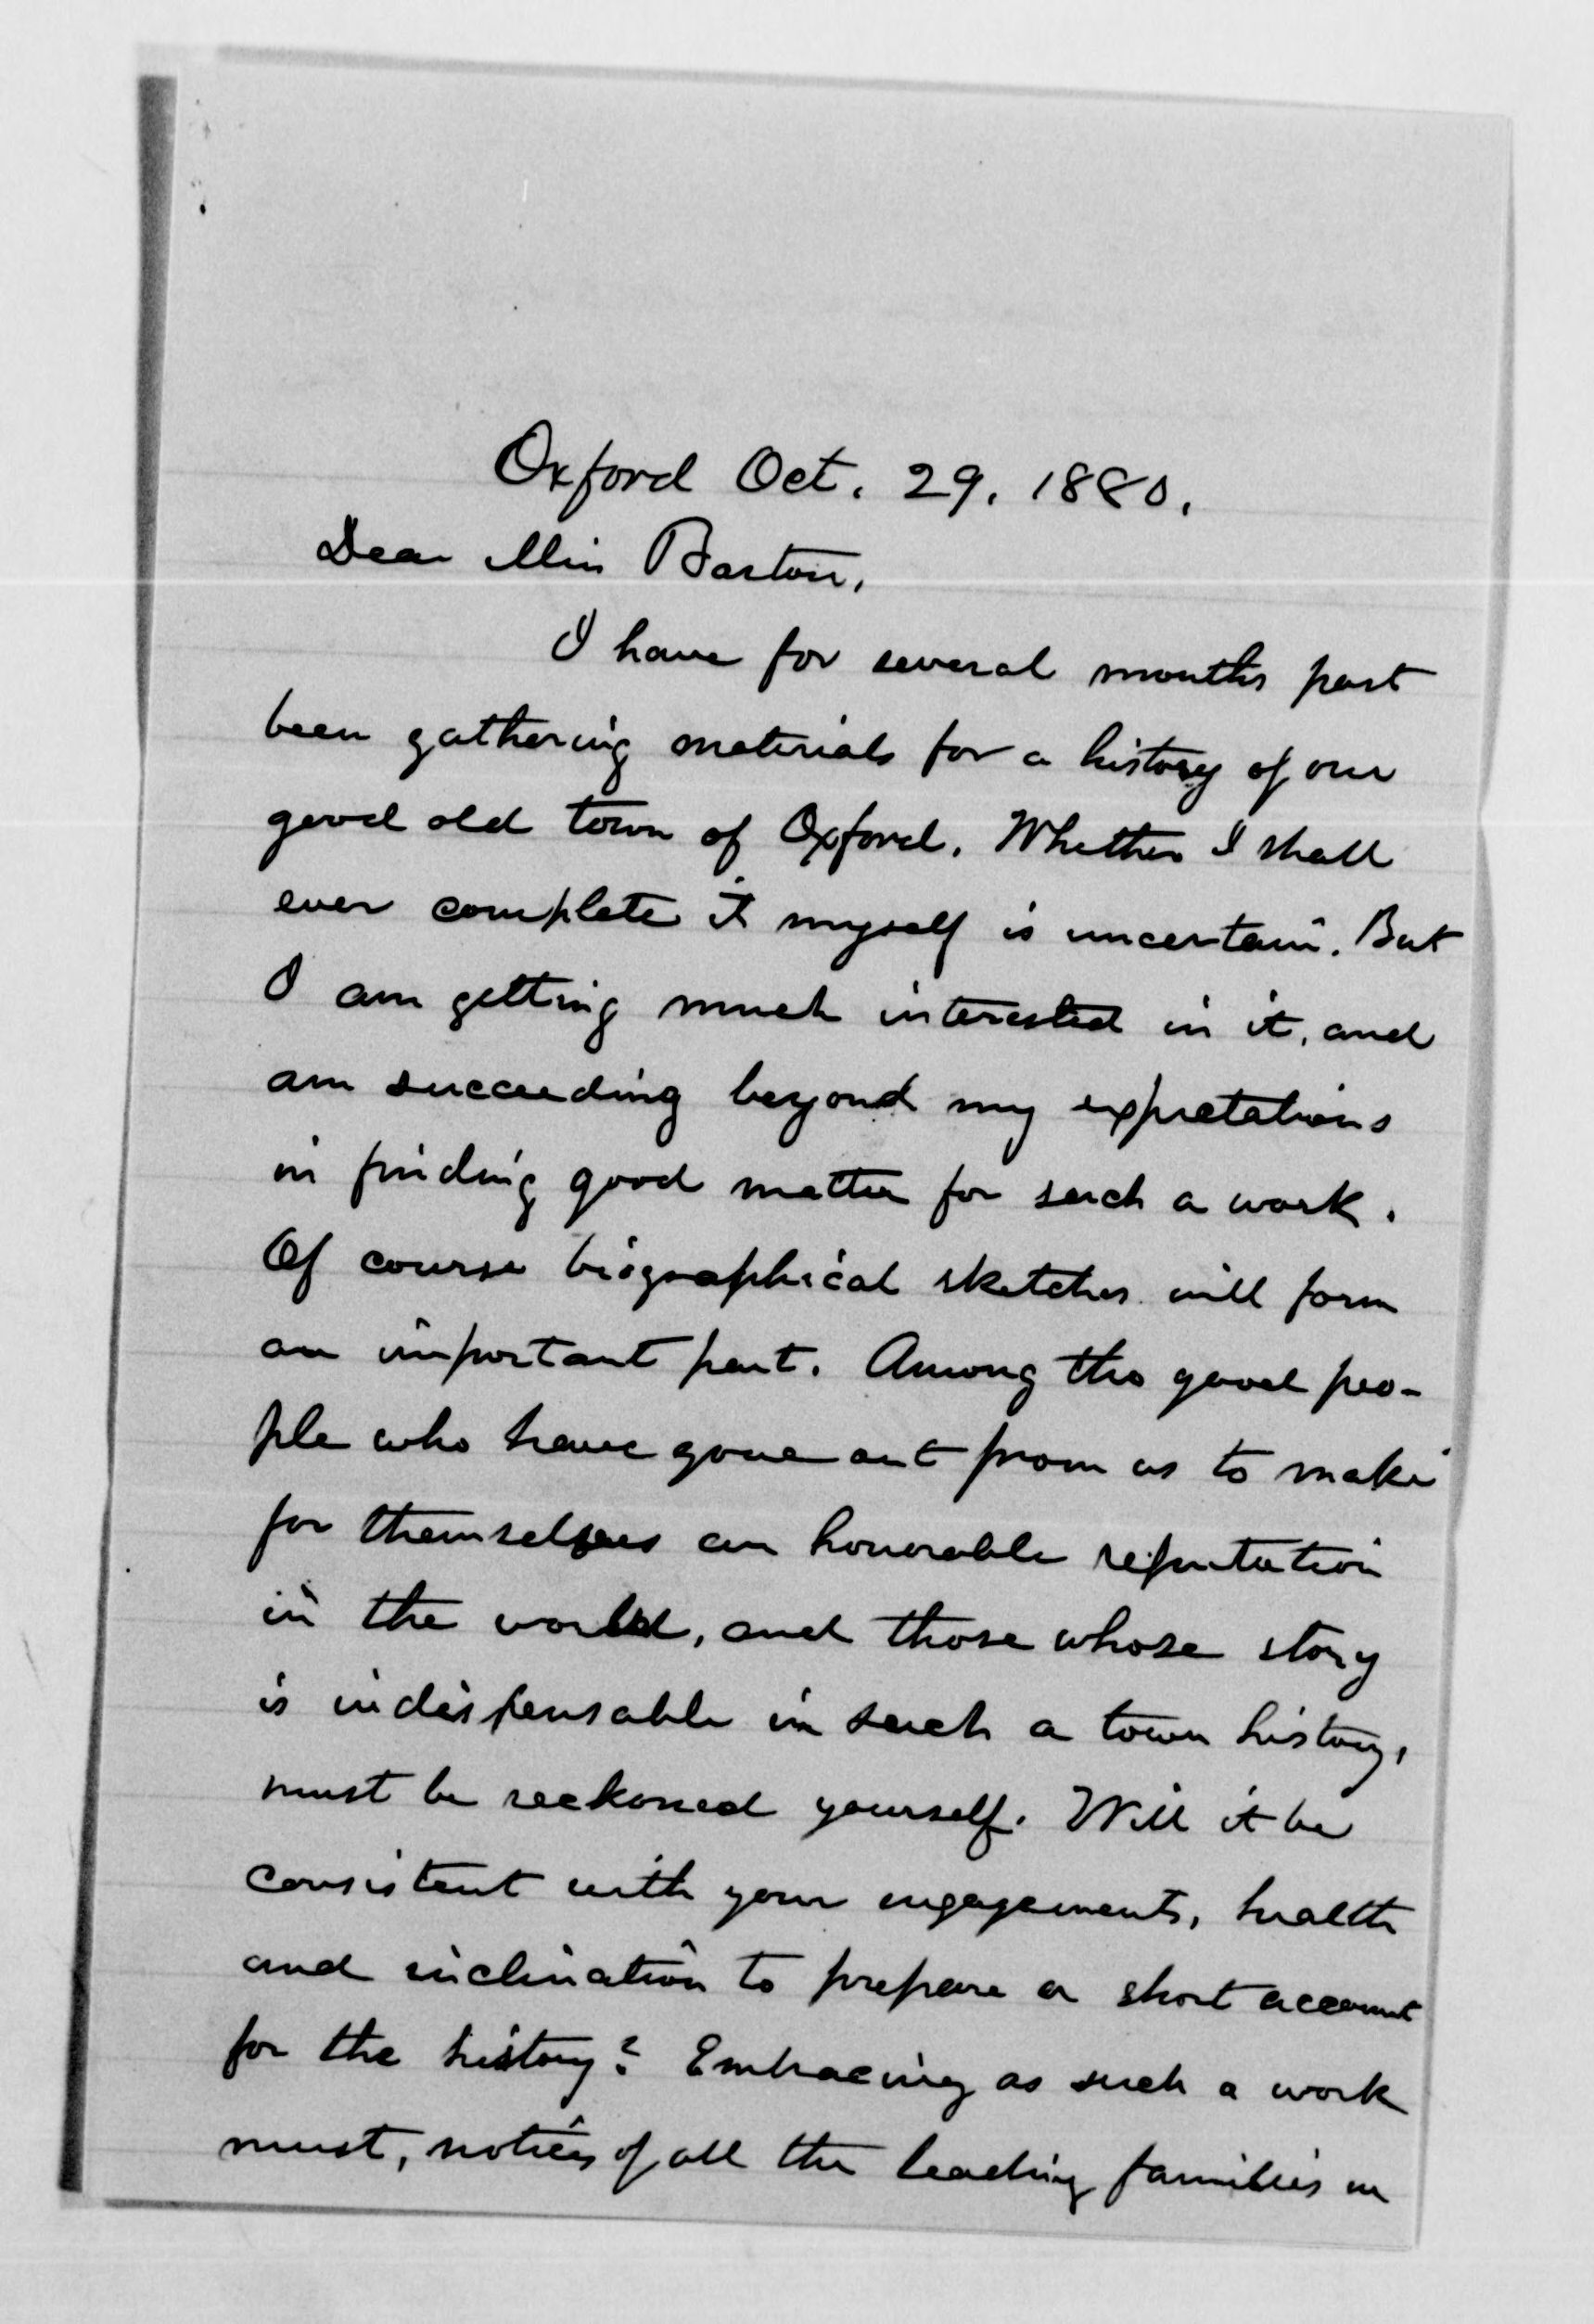 Oxford Oct. 29. 1880.
Dear Miss Barton,
I have for several months past
been gathering materials for a history of our
good old town of Oxford. Whether I shall
ever complete it myself is uncertain. But
I am getting much interested in it, and
am succeeding beyond my expectations
in finding good matter for such a work.
Of course biographical sketches will form
an important part. Among the good peo-
ple who have gone out from us to make
for themselves an honorable reputation
in the world, and those whose story
is indispensable in such a town history,
must be reckoned yourself. Will it be
consistent with your engagements, health
and inclination to prepare a short account
for the history? Embracing as such a work
must, notices of all the leading families in